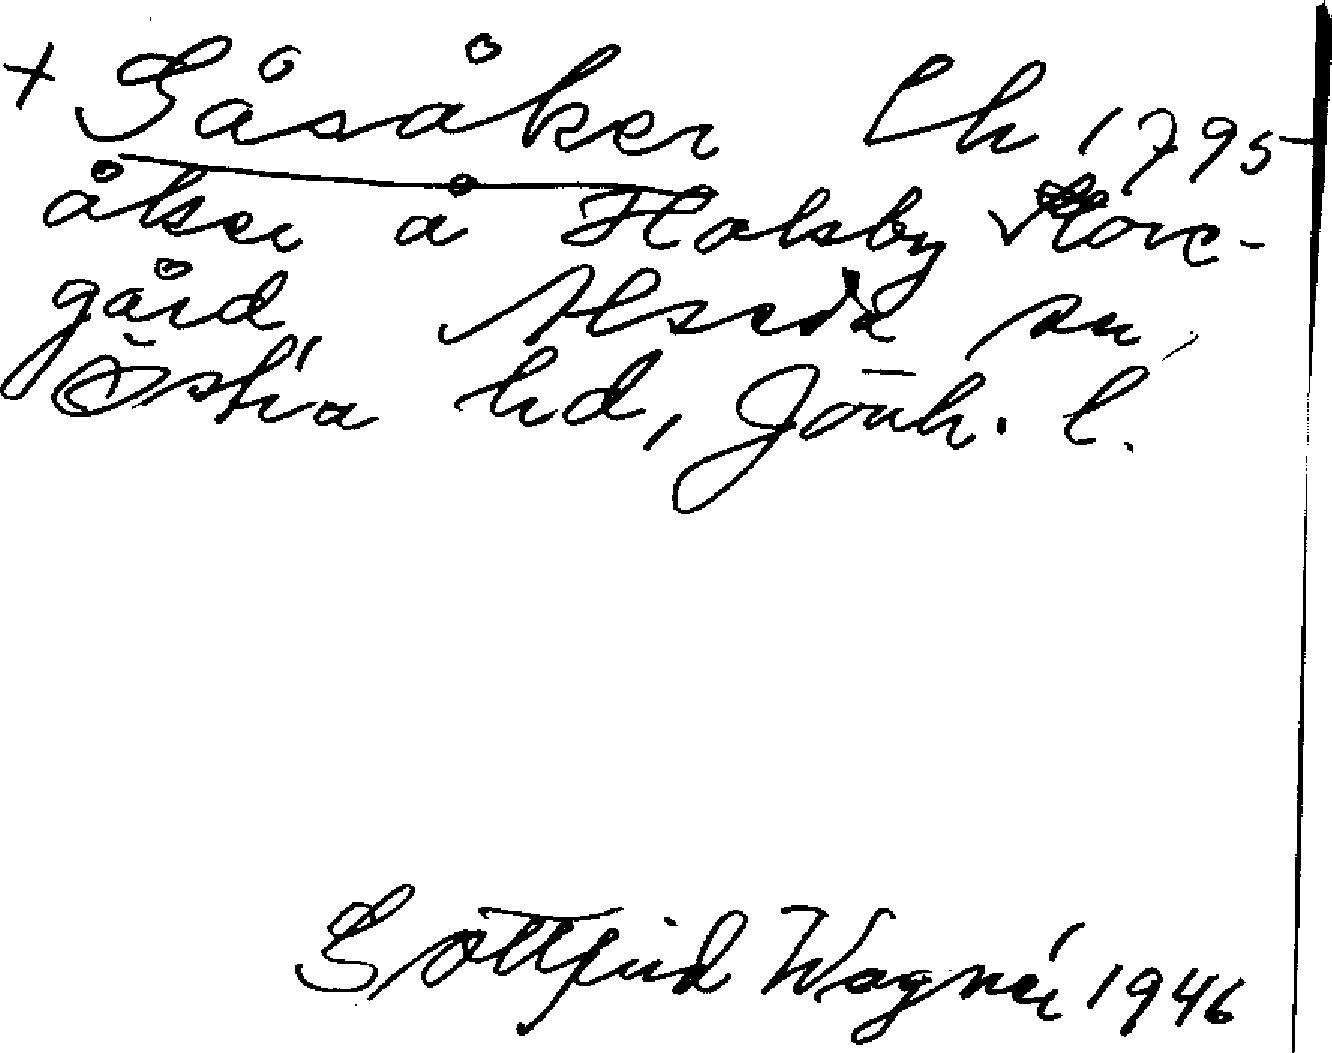 + Gåsåker Lh 1795
åker å Holsby Store-
gård, Alseda sn,
Östra hd, Jönk. l.
Gottfrid Wagnér 1946